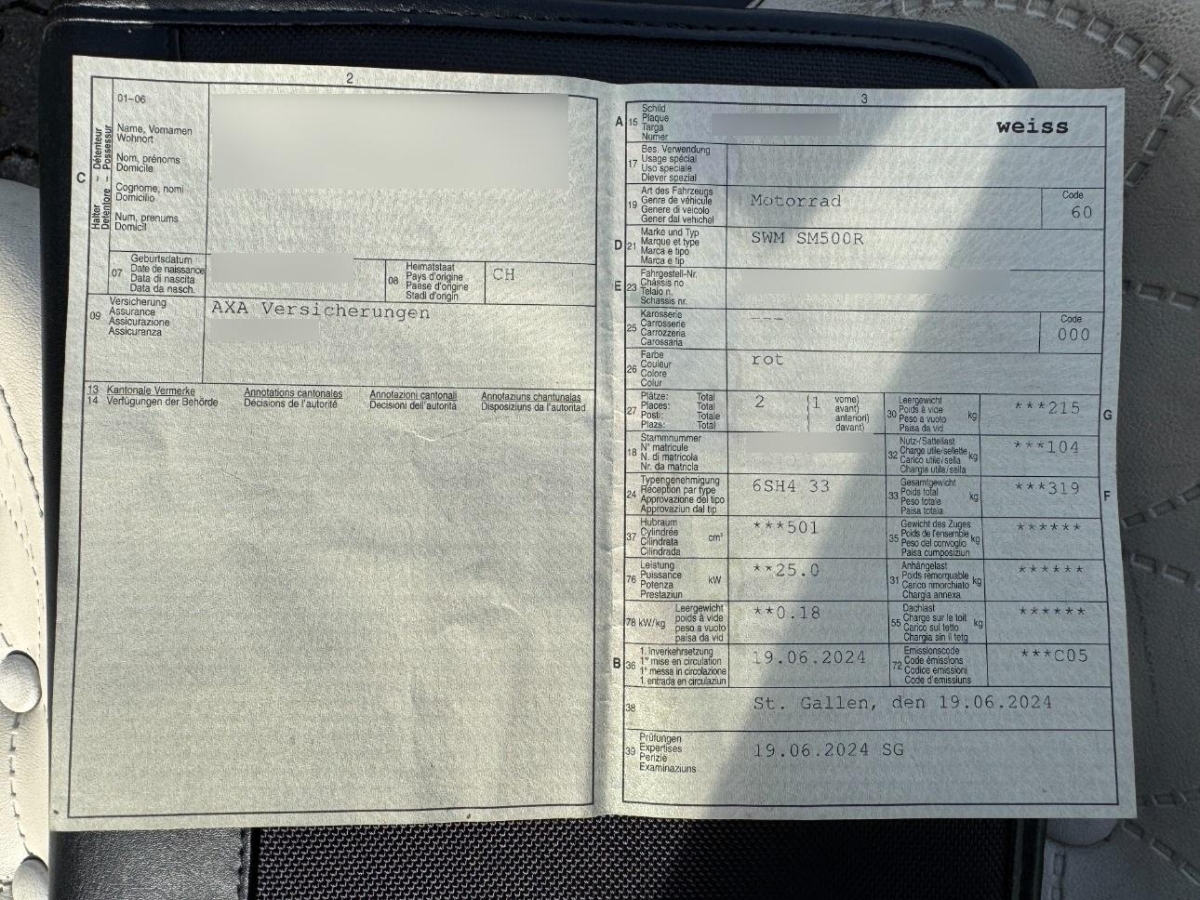 2
01-06
C
Halter - Détenteur
Detentore - Possessur
Name, Vornamen
Wohnort
Nom, prénoms
Domicile
Cognome, nomi
Domicilio
Num, prenums
Domicil
07
Geburtsdatum
Date de naissance
Data di nascita
Data da nasch.
08
Heimatstaat
Pays d'origine
Paese d'origine
Stadi d'origin
CH
09
Versicherung
Assurance
Assicurazione
Assicuranza
AXA Versicherungen
13 Kantonale Vermerke Annotations cantonales Annotazioni cantonali Annotaziuns chantunalas
14 Verfügungen der Behörde Décisions de l'autorité Decisioni dell'autorità Disposiziuns da l'autoritad
3
A 15
Schild
Plaque
Targa
Numer
weiss
17
Bes. Verwendung
Usage spécial
Uso speciale
Diever spezial
19
Art des Fahrzeugs
Genre de véhicule
Genere di veicolo
Gener dal vehichel
Motorrad
Code
60
D 21
Marke und Typ
Marque et type
Marca e tipo
Marca e tip
SWM SM500R
E 23
Fahrgestell-Nr.
Châssis no
Telaio n.
Schassis nr.
25
Karosserie
Carrosserie
Carrozzeria
Carossaria
---
Code
000
26
Farbe
Couleur
Colore
Colur
rot
27
Plätze: Total
Places: Total
Posti: Totale
Plazs: Total
2 (1 vorne)
avant)
anteriori)
davant)
30
Leergewicht
Poids à vide
Peso a vuoto
Paisa da vid
kg
***215
G
18
Stammnummer
N° matricule
N. di matricola
Nr. da matricla
32
Nutz-/Sattellast
Charge utile/sellette
Carico utile/sella
Chargia utila/sella
kg
***104
24
Typengenehmigung
Réception par type
Approvazione del tipo
Approvaziun dal tip
6SH4 33
33
Gesamtgewicht
Poids total
Peso totale
Paisa totala
kg
***319
F
37
Hubraum
Cylindrée
Cilindrata
Cilindrada
cm³
***501
35
Gewicht des Zuges
Poids de l'ensemble
Peso del convoglio
Paisa cumposiziun
kg
******
76
Leistung
Puissance
Potenza
Prestaziun
kW
**25.0
31
Anhängelast
Poids remorquable
Carico rimorchiato
Chargia annexa
kg
******
78 kW/kg
Leergewicht
poids à vide
peso a vuoto
paisa da vid
**0.18
55
Dachlast
Charge sur le toit
Carico sul tetto
Chargia sin il tetg
kg
******
B 36
1. Inverkehrsetzung
1re mise en circulation
1a messa in circolazione
1. entrada en circulaziun
19.06.2024
72
Emissionscode
Code émissions
Codice emissioni
Code d'emissiuns
***C05
38
St. Gallen, den 19.06.2024
39
Prüfungen
Expertises
Perizie
Examinaziuns
19.06.2024 SG